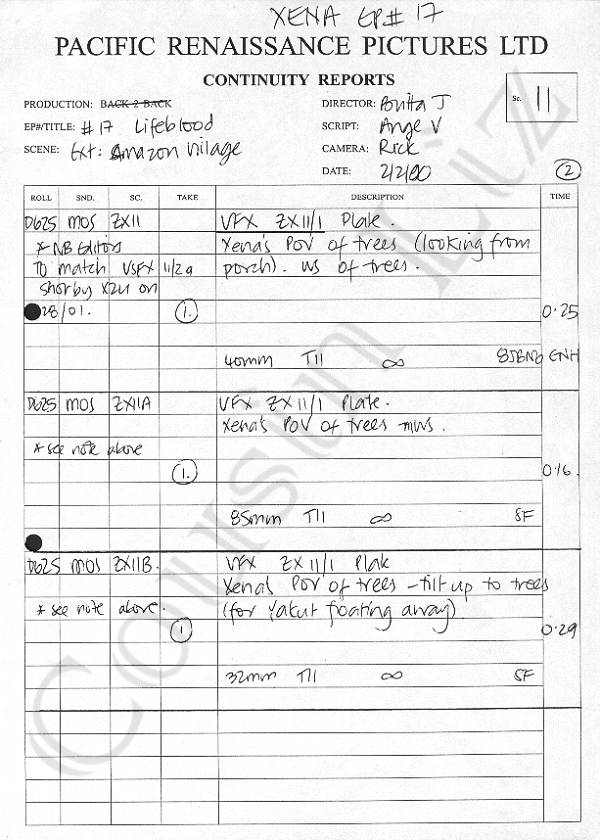 XENA EP# 17
PACIFIC RENAISSANCE PICTURES LTD
CONTINUITY REPORTS
PRODUCTION: BACK 2 BACK
EP#/TITLE: #17 Lifeblood
SCENE: Ext: Amazon Village
DIRECTOR: J
SCRIPT: Ange V
CAMERA: Rick
DATE: 2/2/00
Sc. 11
2
ROLL SND. SC. TAKE DESCRIPTION TIME
D625 MOS ZX11 VFX ZX11/1 Plate.
* NB Editors Xena's POV of trees (looking from
To match VSFX 11/29 porch). WS of trees.
shot by X2U on
28/01. 1. 0.25
40mm T11 ∞ 85BN6 ENH
D625 MOS ZX11A VFX ZX11/1 Plate.
Xena's POV of trees - MWS.
* see note above
1. 0.16.
85mm T11 ∞ SF
D625 MOS ZX11B. VFX ZX11/1 Plate
Xena's POV of trees - tilt up to trees
* see note above. (for Yakut floating away)
1 0.29
32mm T11 ∞ SF